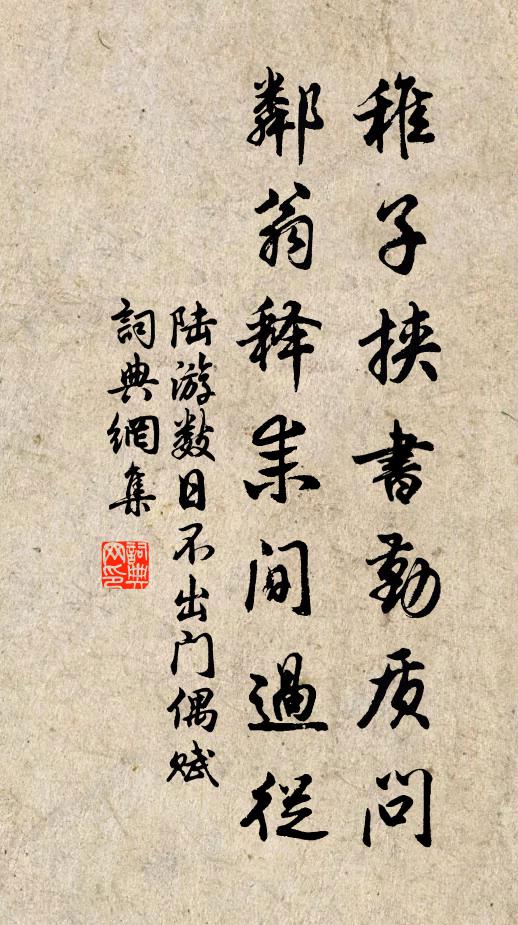 稚子挟書勤质问
鄰翁释耒间過從
陆游数日不出门偶赋
詞典網集
詞典网印